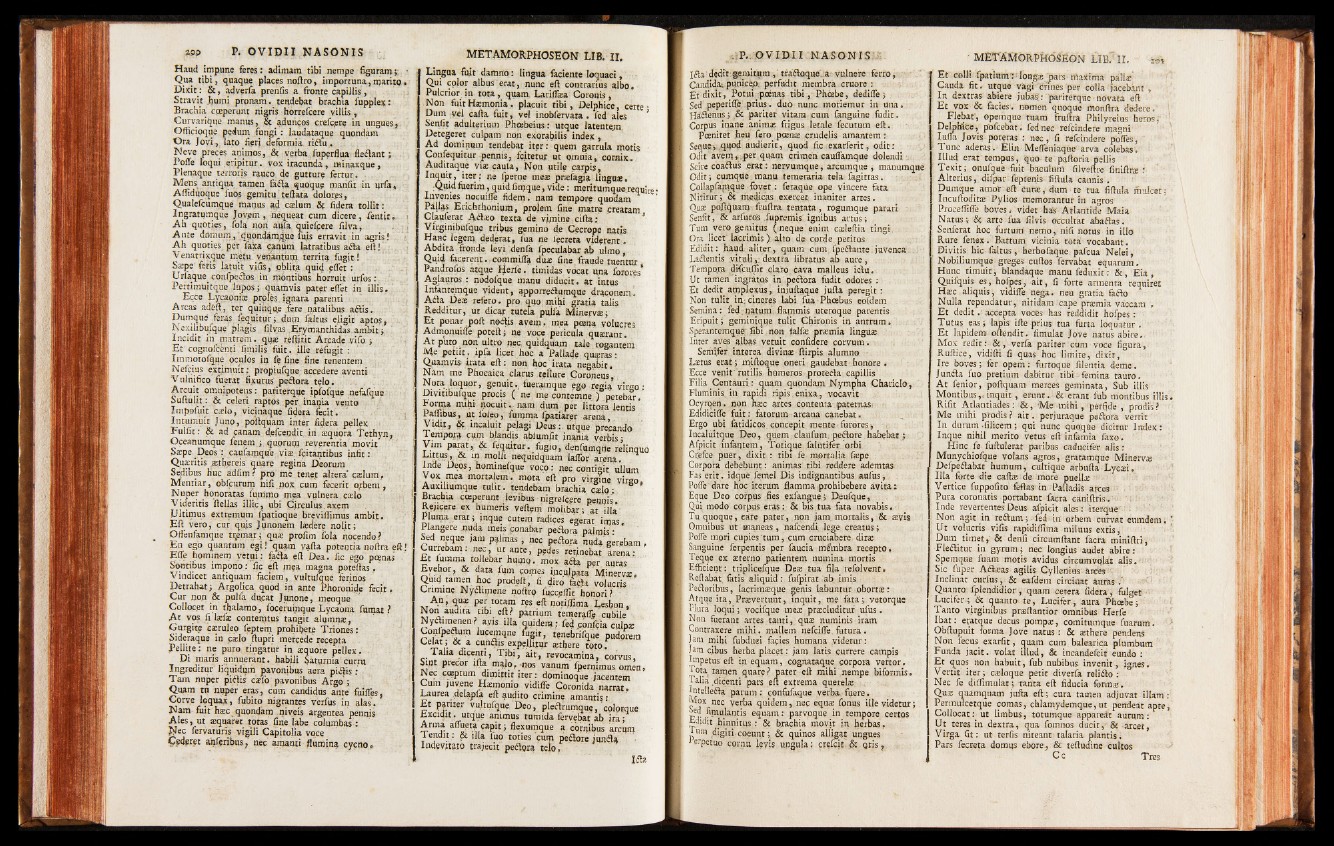 200 P. OVIDII NASONIS
Haud impune feres: adimam tibi nempe figuram;
Qua tibi, quaque places noſtro, importuna, marito.
Dixit: &, adverſa prenſis a fronte capillis,
Stravit humi pronam. tendebat brachia ſupplex:
Brachia cœperunt nigris horreſcere villis,
Curvarique manus, & aduncos creſcere in ungues,
Officioque pedum fungi: laudataque quondam
Ora Jovi, lato fieri deformia rictu.
Neve preces animos, & verba ſuperflua flectant;
Poſſe loqui eripitur. vox iracunda, minaxque,
Plenaque terroris rauco de gutture fertur.
Mens antiqua tamen facta quoque manſit in urſa,
Aſſiduoque ſuos gemitu teſtata dolores,
Qualeſcumque manus ad cælum & ſidera tollit:
Ingratumque Jovem, nequeat cum dicere, ſentit.
Ah quoties, ſola non auſa quieſcere ſilva,
Ante domum, quondamque ſuis erravit in agris!
Ah quoties per ſaxa canum latratibus acta eſt!
Venatrixque metu venantum territa fugit!
Sæpe feris latuit viſis, oblita quid eſſet:
Urſaque conſpectos in montibus horruit urſos:
Pertimuitque lupos; quamvis pater eſſet in illis.
Ecce Lycaoniæ proles ignara parenti
Arcas adeſt, ter quinque fere natalibus actis.
Dumque feras ſequitur; dum ſaltus eligit aptos,
Nexilibuſque plagis ſilvas Erymanthidas ambit;
Incidit in matrem. quæ reſtitit Arcade viſo;
Et cognoſcenti ſimilis fuit. ille refugit:
Immotoſque oculos in ſe ſine fine tenentem
Neſcius extimuit: propiuſque accedere aventi
Vulnifico fuerat fixurus pectora telo.
Arcuit omnipotens: pariterque ipſoſque nefaſque
Suſtulit: & celeri raptos per inania vento
Impoſuit cælo, vicinaque ſidera fecit.
Intumuit Juno, poſtquam inter ſidera pellex
Fulſit: & ad canam deſcendit in æquora Tethyn,
Oceanumque ſenem; quorum reverentia movit
Sæpe Deos: cauſamque viæ ſcitantibus inſit:
Quæritis æthereis quare regina Deorum
Sedibus huc adſim? pro me tenet altera cælum.
Mentiar, obſcurum niſi nox cum fecerit orbem,
Nuper honoratas ſummo mea vulnera cælo
Videritis ſtellas illic, ubi Circulus axem
Ultimus extremum ſpatioque breviſſimus ambit.
Eſt vero, cur quis Junonem lædere nolit;
Offenſamque tremat; quæ proſim ſola nocendo?
En ego quantum egi! quam vaſta potentia noſtra eſt!
Eſſe hominem vetui: facta eſt Dea. ſic ego pœnas
Sontibus impono: ſic eſt mea magna poteſtas,
Vindicet antiquam faciem, vultuſque ferinos
Detrahat; Argolica quod in ante Phoronide fecit.
Cur non & pulſa ducat Junone, meoque
Collocet in thalamo, ſocerumque Lycaona ſumat?
At vos ſi læſæ contemtus tangit alumnæ,
Gurgite cæruleo ſeptem prohibete Triones:
Sideraque in cælo ſtupri mercede recepta
Pellite: ne puro tingatur in æquore pellex.
Di maris annuerant. habili Saturnia curru
Ingreditur liquidum pavonibus aera pictis:
Tam nuper pictis cæſo pavonibus Argo;
Quam tu nuper eras, cum candidus ante fuiſſes,
Corve loquax, ſubito nigrantes verſus in alas.
Nam fuit hæc quondam niveis argentea pennis
Ales, ut æquaret totas ſine labe columbas:
Nec ſervaturis vigili Capitolia voce
Cederet anſeribus, nec amanti flumina cycno.
METAMORPHOSEON LIB. II.
Lingua fuit damno: lingua faciente loquaci,
Qui color albus erat, nunc eſt contrarius albo.
Pulcrior in tota, quam Lariſſæa Coronis,
Non fuit Hæmonia. placuit tibi, Delphice, certe;
Dum vel caſta fuit, vel inobſervata. ſed ales
Senſit adulterium Phœbeius: utque latentem
Detegeret culpam non exorabilis index,
Ad dominum tendebat iter: quem garrula motis
Conſequitur pennis, ſcitetur ut omnia, cornix.
Auditaque viæ cauſa, Non utile carpis,
Inquit, iter: ne ſperne meæ præſagia linguæ.
Quid fuerim, quid ſimque, vide: meritumque require:
Invenies nocuiſſe fidem. nam tempore quodam
Pallas Erichthonium, prolem ſine matre creatam,
Clauſerat Actæo texta de vimine ciſta:
Virginibuſque tribus gemino de Cecrope natis
Hanc legem dederat, ſua ne ſecreta viderent.
Abdita fronde levi denſa ſpeculabar ab ulmo,
Quid facerent. commiſſa duæ ſine fraude tuentur,
Pandroſos atque Herſe. timidas vocat una ſorores
Aglauros: nodoſque manu diducit. at intus
Infantemque vident, apporrectumque draconem.
Acta Deæ refero. pro quo mihi gratia talis
Redditur, ut dicar tutela pulſa Minervæ;
Et ponar poſt noctis avem. mea pœna volucres
Admonuiſſe poteſt; ne voce pericula quærant.
At puto non ultro nec quidquam tale rogantem
Me petiit. ipſa licet hoc a Pallade quæras:
Quamvis irata eſt: non hoc irata negabit.
Nam me Phocaica clarus tellure Coroneus,
Nota loquor, genuit. fueramque ego regia virgo:
Divitibuſque procis ( ne me contemne ) petebar.
Forma mihi nocuit. nam dum per littora lentis
Paſſibus, ut ſoleo, ſumma ſpatiarer arena,
Vidit, & incaluit pelagi Deus: utque precando
Tempora cum blandis abſumſit inania verbis;
Vim parat, & ſequitur. fugio, denſumque relinquo
Littus, & in molli nequidquam laſſor arena.
Inde Deos, hominesque voco: nec contigit ullum
Vox mea mortalem. mota eſt pro virgine virgo,
Auxiliumque tulit. tendebam brachia cælo;
Brachia cœperunt levibus nigreſcere pennis.
Rejicere ex humeris veſtem molibar; at illa
Pluma erat; inque cutem radices egerat imas.
Plangere nuda meis conabar pectora palmis:
Sed neque jam palmas, nec pectora nuda gerebam.
Currebam: nec, ut ante, pedes retinebat arena:
Et ſumma tollebar humo. mox acta per auras
Evehor, & data ſum comes inculpata Minervæ.
Quid tamen hoc prodeſt, ſi diro facta volucris
Crimine Nyctimene noſtro ſucceſſit honori?
An, quæ per totam res eſt notiſſima Lesbon,
Non audita tibi eſt? patrium temeraſſe cubile
Nyctimenen? avis illa quidem; ſed conſcia culpæ
Conſpectum lucemque fugit, tenebriſque pudorem
Celat; & a cunctis expellitur æthere toto.
Talia dicenti, Tibi, ait, revocamina, corvus,
Sint precor iſta malo. nos vanum ſpernimus omen,
Nec cœptum dimittit iter: dominoque jacentem
Cum juvene Hæmonio vidiſſe Coronida narrat.
Laurea delapſa eſt audito crimine amantis:
Et pariter vultuſque Deo, plectrumque, colorque
Excidit. utque animus tumida fervebat ab ira;
Arma aſſueta capit; flexumque a cornibus arcum
Tendit: & illa ſuo toties cum pectore juncta
Indevitato trajecit pectora telo.
Icta
P. OVIDII NASONIS
Icta dedit gemitum, tractoque a vulnere ferro,
Candida puniceo perfudit membra cruore:
Et dixit, Potui pœnas tibi, Phœbe, dediſſe;
Sed peperiſſe prius. duo nunc moriemur in una.
Hactenus; & pariter vitam cum ſanguine fudit.
Corpus inane animæ frigus letale ſecutum eſt.
Pœnitet heu ſero pœnæ crudelis amantem:
Seque, quod audierit, quod ſic exarſerit, odit:
Odit avem, per quam crimen cauſſamque dolendi
Scire coactus erat: nervumque, arcumque, manumque
Odit, cumque manu temeraria tela ſagittas.
Collapſamque fovet: ſeraque ope vincere fata
Nititur; & medicas exercet inaniter artes.
Quæ poſtquam fruſtra tentata, rogumque parari
Senſit, & arſuros ſupremis ignibus artus;
Tum vero gemitus ( neque enim cæleſtia tingi
Ora licet lacrimis ) alto de corde petitos
Edidit: haud aliter, quam cum ſpectante juvenca
Lactentis vituli, dextra libratus ab aure,
Tempora diſcuſſit claro cava malleus ictu.
Ut tamen ingratos in pectora fudit odores:
Et dedit amplexus, injuſtaque juſta peregit:
Non tulit in cineres labi ſua Phœbus eoſdem
Semina: ſed natum flammis uteroque parentis
Eripuit; geminique tulit Chironis in antrum.
Sperantemque ſibi non falſæ præmia linguæ
Inter aves albas vetuit conſidere corvum.
Semifer interea divinæ ſtirpis alumno
Lætus erat; miſtoque oneri gaudebat honore.
Ecce venit rutilis humeros protecta capillis
Filia Centauri: quam quondam Nympha Chariclo,
Fluminis in rapidi ripis enixa, vocavit
Ocyroen. non hæc artes contenta paternas
Edidiciſſe fuit: fatorum arcana canebat.
Ergo ubi fatidicos concepit mente furores,
Incaluitque Deo, quem clauſum pectore habebat;
Aſpicit infantem, Totique ſalutifer orbi
Creſce puer, dixit: tibi ſe mortalia ſæpe
Corpora debebunt: animas tibi reddere ademtas
Fas erit. idque ſemel Dis indignantibus auſus,
Poſſe dare hoc iterum flamma prohibebere avita:
Eque Deo corpus fies exſangue; Deuſque,
Qui modo corpus eras: & bis tua fata novabis.
Tu quoque, care pater, non jam mortalis, & ævis
Omnibus ut maneas, naſcendi lege creatus;
Poſſe mori cupies tum, cum cruciabere diræ
Sanguine ſerpentis per ſaucia membra recepto.
Teque ex æterno patientem numina mortis
Efficient: tripliceſque Deæ tua fila reſolvent.
Reſtabat fatis aliquid: ſuſpirat ab imis
Pectoribus, lacrimæque genis labuntur obortæ:
Atque ita, Prævertunt, inquit, me fata; vetorque
Plura loqui; vociſque meæ præcluditur uſus.
Non fuerant artes tanti, quæ numinis iram
Contraxere mihi. mallem neſciſſe futura.
Jam mihi ſubduci facies humana videtur:
Jam cibus herba placet: jam latis currere campis
Impetus eſt in equam, cognataque corpora vertor.
Tota tamen quare? pater eſt mihi nempe biformis.
Talia dicenti pars eſt extrema querelæ
Intellecta parum: confuſaque verba fuere.
Mox nec verba quidem, nec equæ ſonus ille videtur;
Sed ſimulantis equam: parvoque in tempore certos
Edidit hinnitus: & brachia movit in herbas.
Tum digiti coeunt; & quinos alligat ungues
Perpetuo cornu levis ungula: creſcit & oris,
METAMORPHOSEON LIB. II. 201
Et colli ſpatium: longæ pars maxima pallæ
Cauda fit. utque vagi crines per colla jacebant,
In dextras abiere jubas: pariterque novata eſt
Et vox & facies. nomen quoque monſtra dedere.
Flebat, opemque tuam fruſtra Philyreius heros,
Delphice, poſcebat. ſed nec reſcindere magni
Juſſa Jovis poteras: nec, ſi reſcindere poſſes,
Tunc aderas. Elin Meſſeniaque arva colebas.
Illud erat tempus, quo te paſtoria pellis
Texit; onuſque fuit baculum ſilveſtre ſiniſtræ:
Alterius, diſpar ſeptenis fiſtula cannis.
Dumque amor eſt curæ, dum te tua fiſtula mulcet;
Incuſtoditæ Pylios memorantur in agros
Proceſſiſſe boves. videt has Atlantide Maia
Natus; & arte ſua ſilvis occultat abactas.
Senſerat hoc furtum nemo, niſi notus in illo
Rure ſenex. Battum vicinia tota vocabant.
Divitis hic ſaltus, herboſaque paſcua Nelei,
Nobiliumque greges cuſtos ſervabat equarum.
Hunc timuit, blandaque manu ſeduxit: &, Eia,
Quiſquis es, hoſpes, ait, ſi forte armenta requiret
Hæc aliquis, vidiſſe nega. neu gratia facto
Nulla rependatur, nitidam cape præmia vaccam.
Et dedit. accepta voces has reddidit hoſpes:
Tutus eas; lapis iſte prius tua furta loquatur.
Et lapidem oſtendit. ſimulat Jove natus abire.
Mox redit: &, verſa pariter cum voce figura,
Ruſtice, vidiſti ſi quas hoc limite, dixit,
Ire boves; fer opem: furtoque ſilentia deme.
Juncta ſuo pretium dabitur tibi femina tauro.
At ſenior, poſtquam merces geminata, Sub illis
Montibus, inquit, erunt. & erant ſub montibus illis.
Riſit Atlantiades: &, Me mihi, perfide, prodis?
Me mihi prodis? ait. perjuraque pectora vertit
In durum ſilicem; qui nunc quoque dicitur Index:
Inque nihil merito vetus eſt infamia ſaxo.
Hinc ſe ſuſtulerat paribus caducifer alis:
Munychioſque volans agros, gratamque Minervæ
Deſpectabat humum, cultique arbuſta Lycæi.
Illa forte die caſtæ de more puellæ
Vertice ſuppoſito feſtas in Palladis arces
Pura coronatis portabant ſacra caniſtris.
Inde revertentes Deus aſpicit ales: iterque
Non agit in rectum; ſed in orbem curvat eumdem.
Ut volucris viſis rapidiſſima miluus extis,
Dum timet, & denſi circumſtant ſacra miniſtri,
Flectitur in gyrum; nec longius audet abire:
Spemque ſuam motis avidus circumvolat alis.
Sic ſuper Actæas agilis Cyllenius arces
Inclinat curſus, & eaſdem circinat auras.
Quanto ſplendidior, quam cetera ſidera, fulget
Lucifer; & quanto te, Lucifer, aurea Phœbe;
Tanto virginibus præſtantior omnibus Herſe
Ibat: eratque decus pompæ, comitumque ſuarum.
Obſtupuit forma Jove natus: & æthere pendens
Non ſecus exarſit, quam cum balearica plumbum
Funda jacit. volat illud, & incandeſcit eundo:
Et quos non habuit, ſub nubibus invenit, ignes.
Vertit iter; cæloque petit diverſa relicto:
Nec ſe diſſimulat; tanta eſt fiducia formæ.
Quæ quamquam juſta eſt; cura tamen adjuvat illam:
Permulcetque comas, chlamydemque, ut pendeat apte,
Collocat: ut limbus, totumque appareat aurum:
Ut teres in dextra, qua ſomnos ducit, & arcet,
Virga ſit: ut terſis niteant talaria plantis.
Pars ſecreta domus ebore, & teſtudine cultos
Cc Tres